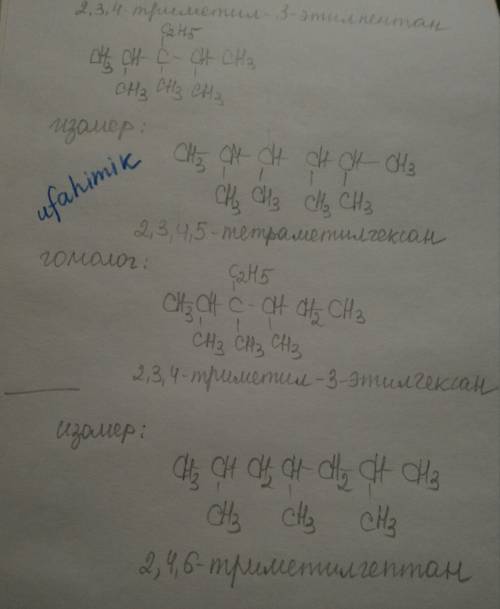 2,3,4-триметил-3-этилпентан
C2H5
CH3 CH - C - CH CH3
CH3 CH3 CH3
изомер:
CH3 CH - CH CH CH - CH3
CH3 CH3 CH3 CH3
ufahimik
2,3,4,5-тетраметилгексан
гомолог:
C2H5
CH3 CH C - CH CH2 CH3
CH3 CH3 CH3
2,3,4-триметил-3-этилгексан
изомер:
CH3 CH CH2 CH CH2 CH CH3
CH3 CH3 CH3
2,4,6-триметилгептан